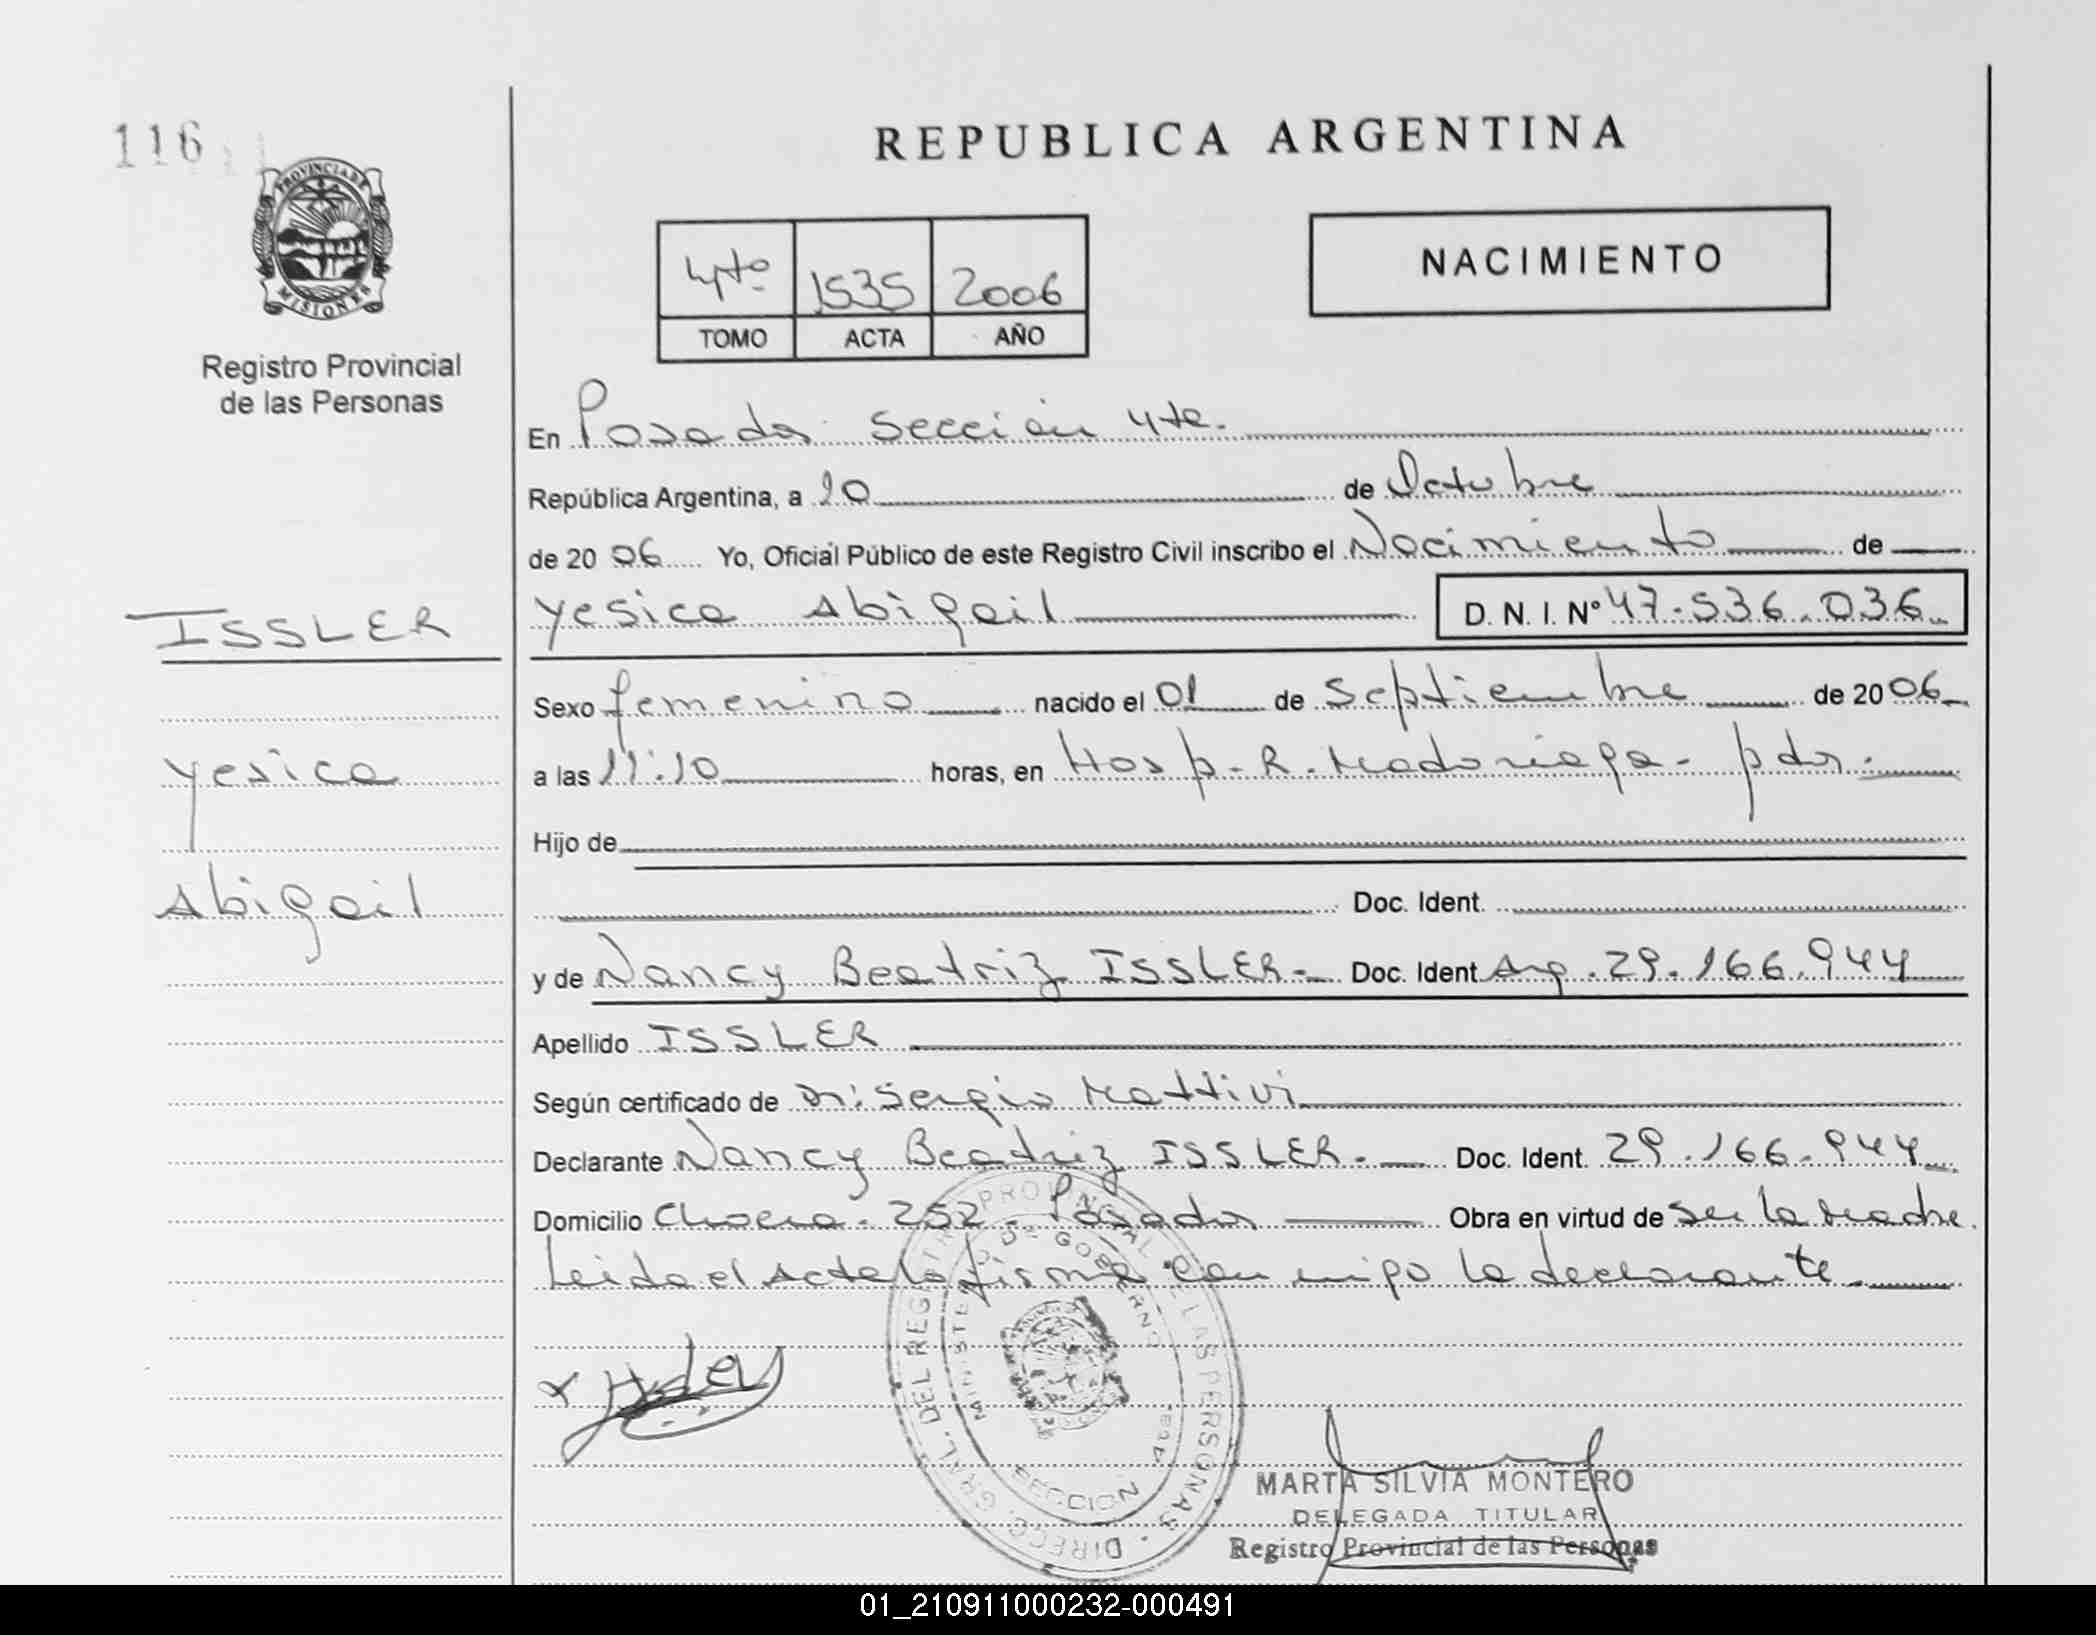 116
PROVINCIA DE
MISIONES
Registro Provincial
de las Personas
REPUBLICA ARGENTINA
4to 1535 2006
TOMO ACTA AÑO
NACIMIENTO
En Posadas Sección 4ta.
República Argentina, a 10 de Octubre
de 2006 Yo, Oficial Público de este Registro Civil inscribo el Nacimiento de
Yesica Abigail D. N. I. N° 47.536.036
ISSLER
Yesica
Abigail
Sexo femenino nacido el 01 de Septiembre de 2006
a las 11:10 horas, en Hosp. R. Madariaga - pdas.
Hijo de
Doc. Ident.
y de Nancy Beatriz ISSLER.- Doc. Ident. Arg. 29.166.944
Apellido ISSLER
Según certificado de Dr: Sergio Mattivi
Declarante Nancy Beatriz ISSLER. Doc. Ident. 29.166.944
Domicilio 252 - Posadas Obra en virtud de Ser la Madre.
Leida el Acta la firma con migo la declarante.
DIREC. GRAL. DEL REGISTRO PROVINCIAL DE LAS PERSONAS
MINISTERIO DE GOBIERNO
SECCION
MARTA SILVIA MONTERO
DELEGADA TITULAR
Registro Provincial de las Personas
01_210911000232-000491